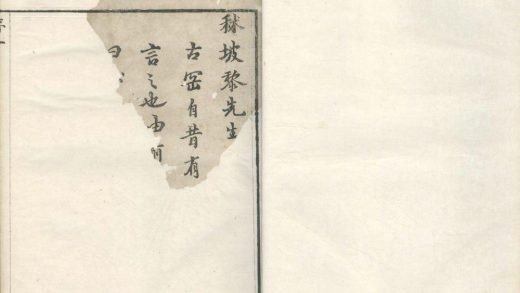 秫坡黎先生
古岡自昔有
言之也由
曰